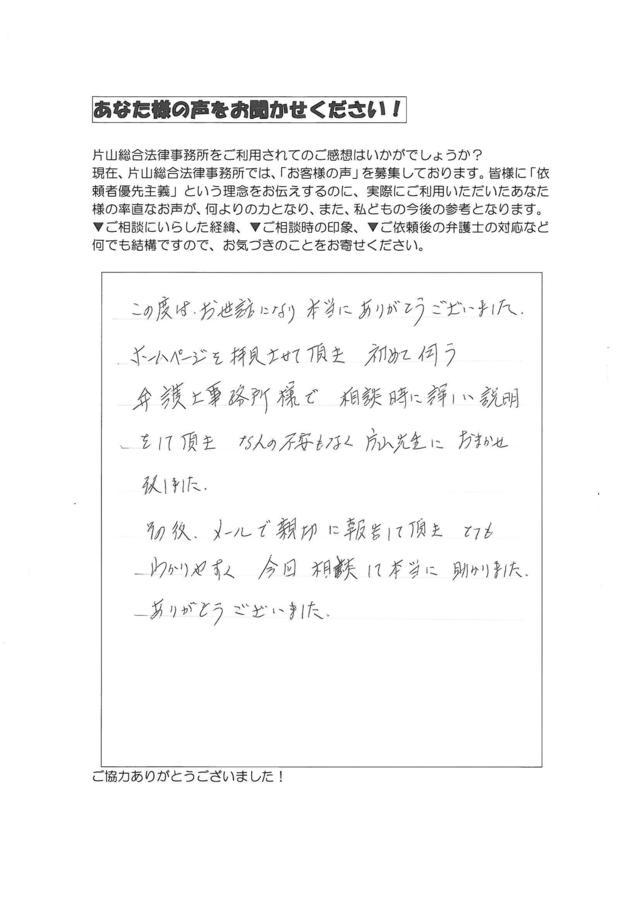 あなた様の声をお聞かせください！
片山総合法律事務所をご利用されてのご感想はいかがでしょうか？
現在、片山総合法律事務所では、「お客様の声」を募集しております。皆様に「依
頼者優先主義」という理念をお伝えするのに、実際にご利用いただいたあなた
様の率直なお声が、何よりの力となり、また、私どもの今後の参考となります。
▼ご相談にいらした経緯、▼ご相談時の印象、▼ご依頼後の弁護士の対応など
何でも結構ですので、お気づきのことをお寄せください。
この度は、お世話になり 本当にありがとうございました。
ホームページを拝見させて頂き 初めて伺う
弁護士事務所様で 相談時に詳しい説明
をして頂き なんの不安もなく 片山先生に おまかせ
致しました。
その後、メールで親切に報告して頂き とても
わかりやすく 今回 相談して本当に 助かりました。
ありがとうございました。
ご協力ありがとうございました！